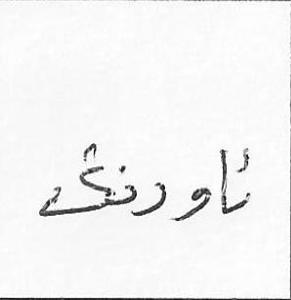 ئاورنگے